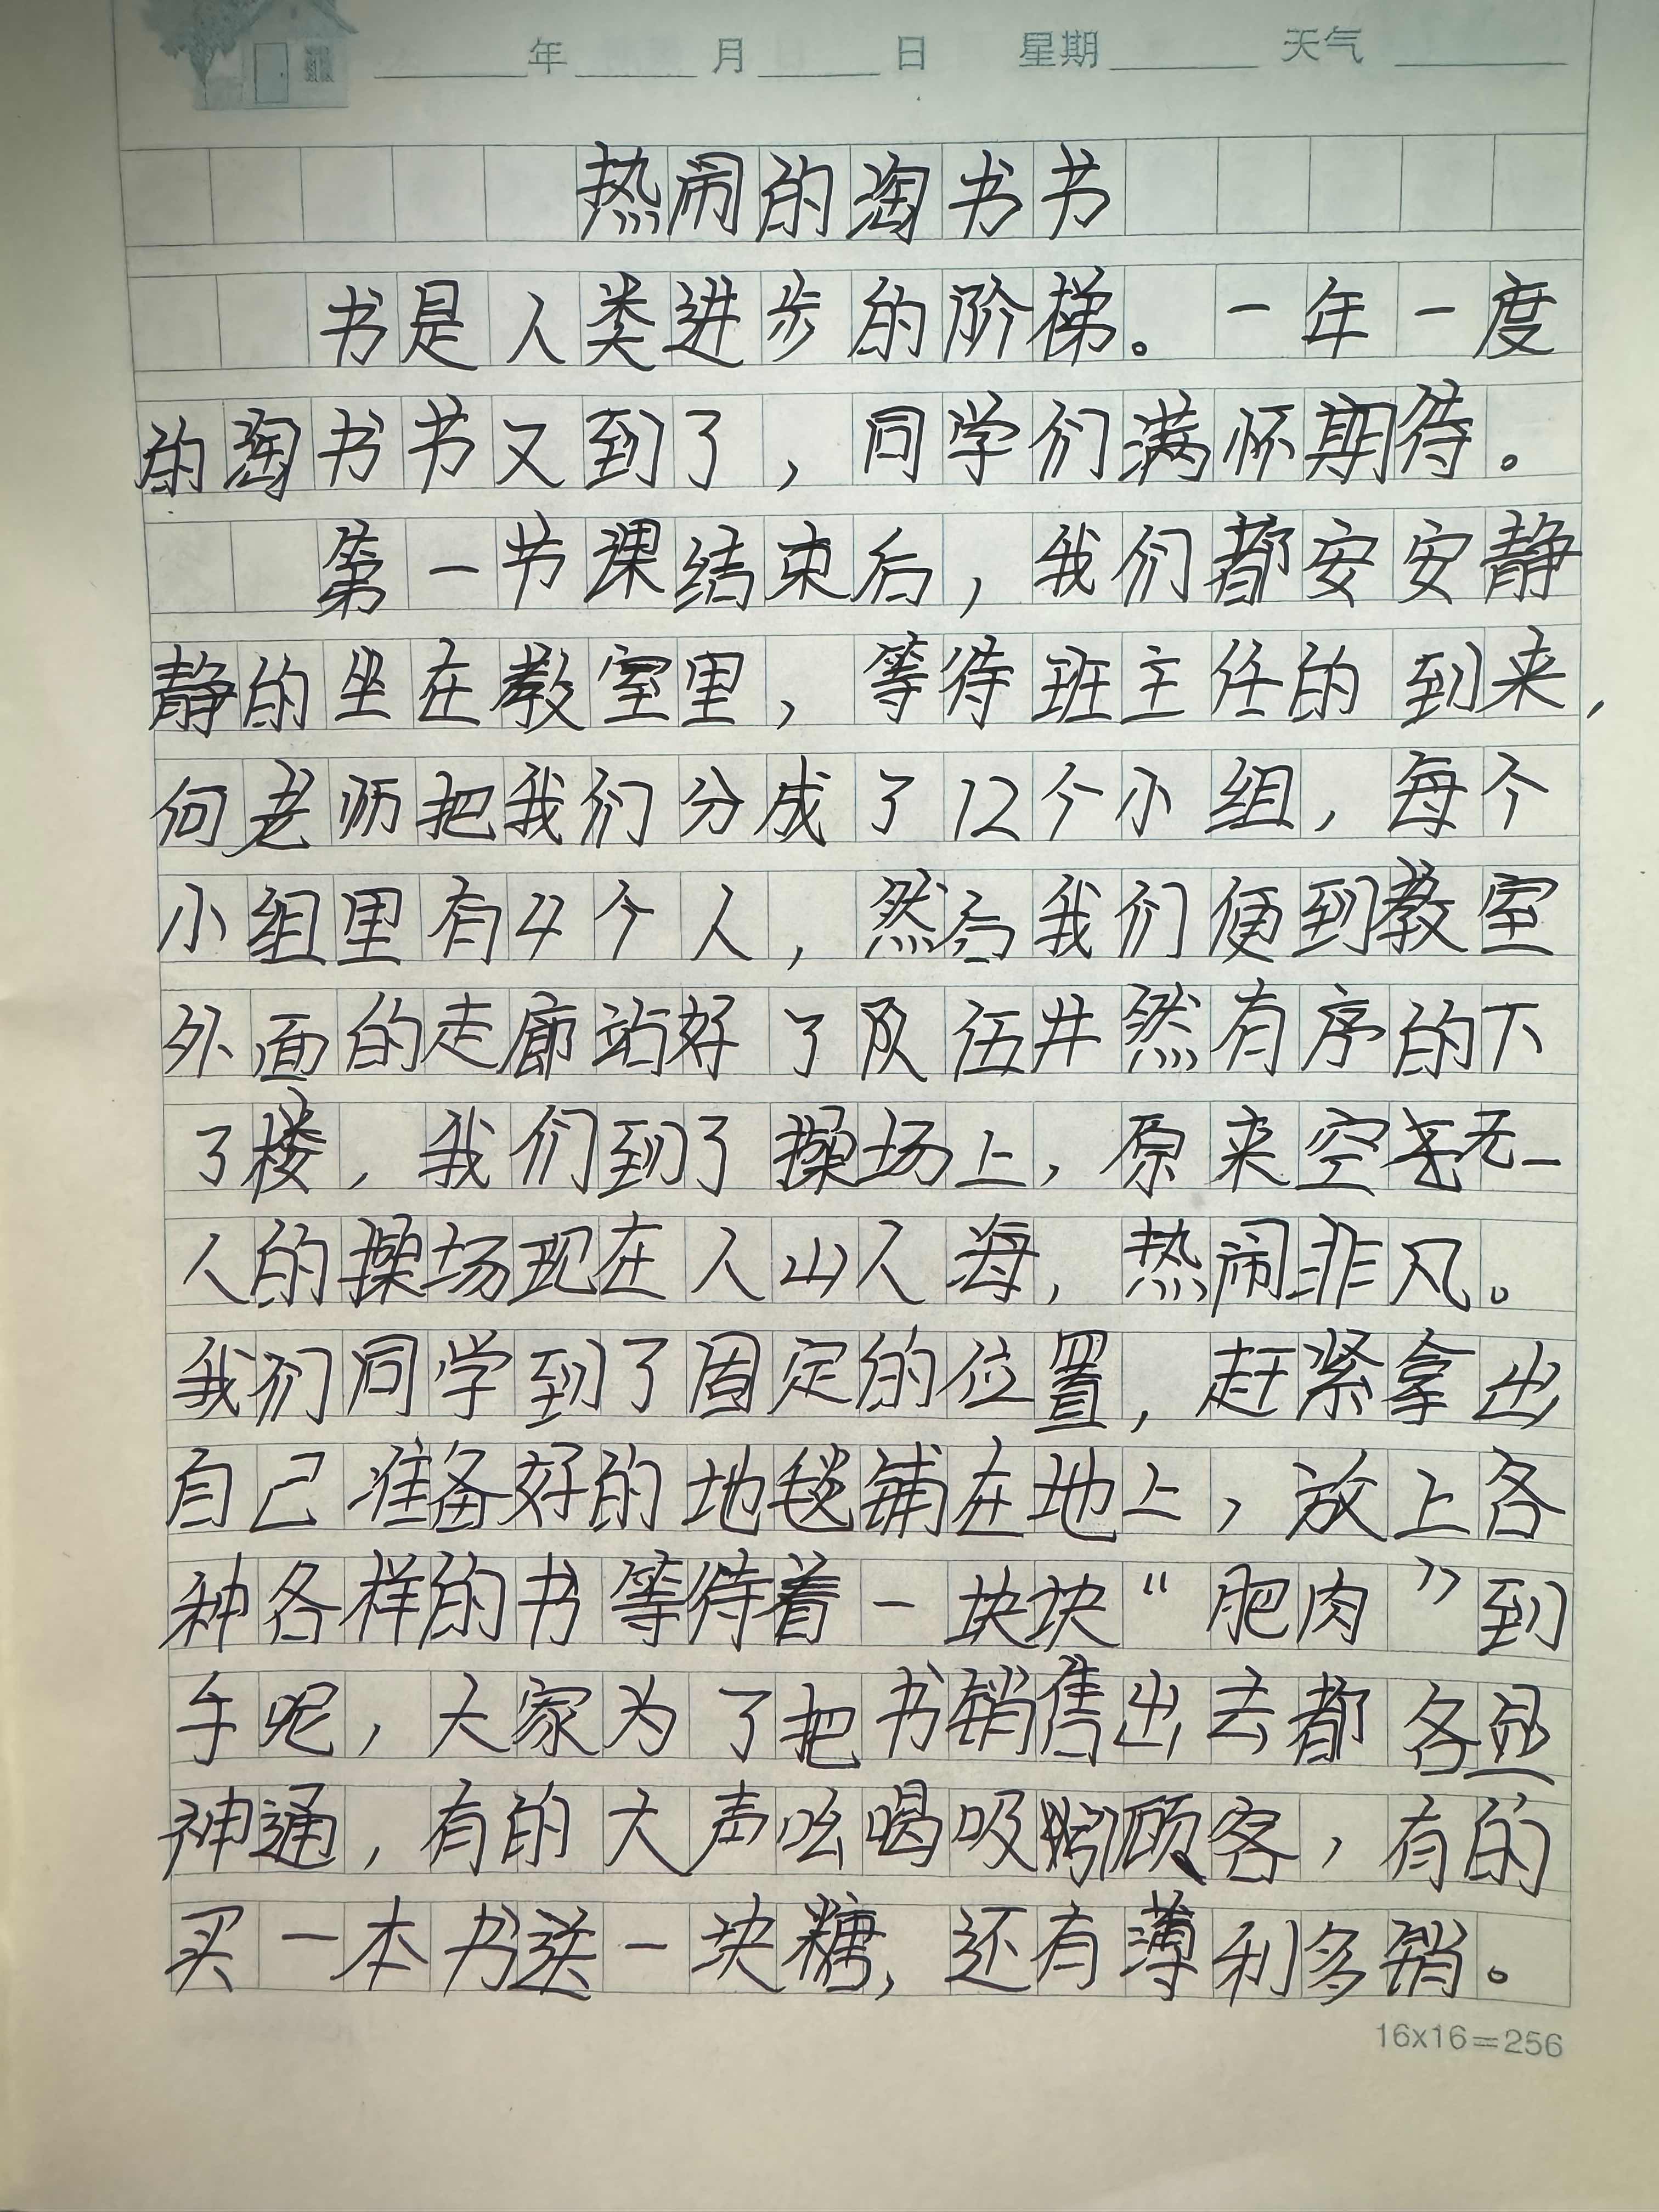 年 月 日 星期 天气
热闹的淘书节
书是人类进步的阶梯。一年一度
的淘书节又到了，同学们满怀期待。
第一节课结束后，我们都安安静
静的坐在教室里，等待班主任的到来，
何老师把我们分成了12个小组，每个
小组里有4个人，然后我们便到教室
外面的走廊站好了队伍井然有序的下
了楼，我们到了操场上，原来空无一
人的操场现在人山人海，热闹非凡。
我们同学到了固定的位置，赶紧拿出
自己准备好的地毯铺在地上，放上各
种各样的书等待着一块块“肥肉”到
手呢，大家为了把书销售出去都各显
神通，有的大声吆喝吸引顾客，有的
买一本书送一块糖，还有薄利多销。
16x16=256